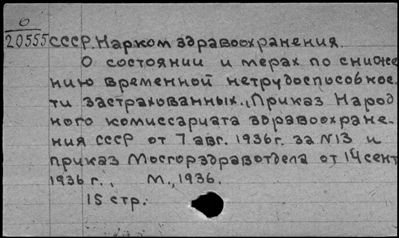 6
20555 СССР. Нарком здравоохранения.
О состоянии и мерах по сниже-
нию временной нетрудоспособнос-
ти застрахованных., Приказ Народ
ного комиссариата здравоохране-
ния СССР от 7 авг. 1936г. за №13 и
приказ Мосгорздравотдела от 14 сент
1936 г., М., 1936.
15 стр.